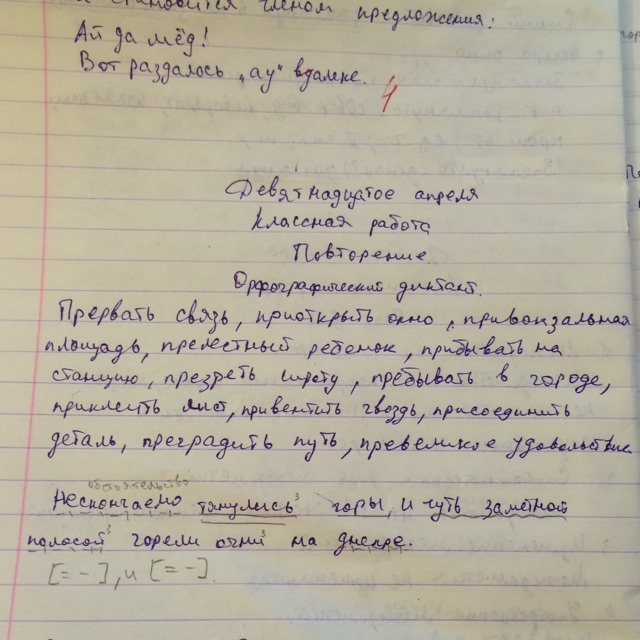 становится членом предложения:
Ай да мёд!
Вот раздалось „ау" вдалеке.
Девятнадцатое апреля
Классная работа
Повторение
Орфографический диктант.
Прервать связь, приоткрыть окно, привокзальная
площадь, прелестный ребёнок, прибывать на
станцию, презреть сироту, пребывать в городе,
приклеить лист, привентить гвоздь, присоединить
деталь, преградить путь, превеликое удовольствие
обстоятельство
Нескончаемо тянулись³ горы, и чуть заметной
полосой³ горели огни³ на
[= -], и [= -].